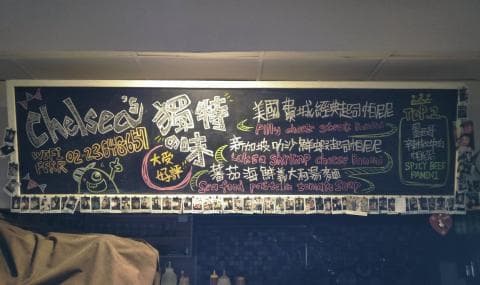 Chelsea's
獨特
の味
WiFi
大受
好評
美國費城經典起司帕尼尼
Philly cheese steak Panini
新加坡叻沙鮮蝦起司帕尼尼
Laksa shrimp cheese Panini
蕃茄海鮮義大利湯麵
Seafood pasta in tomato soup
TOP.1
SPICY BEEF
PANINI